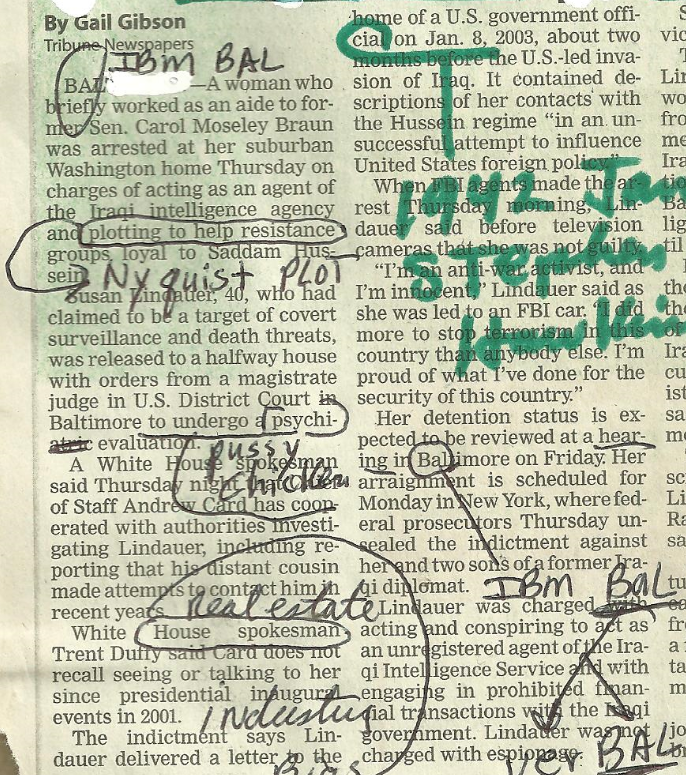 By Gail Gibson
Tribune Newspapers
IBM BAL
BAL —A woman who
briefly worked as an aide to for-
mer Sen. Carol Moseley Braun
was arrested at her suburban
Washington home Thursday on
charges of acting as an agent of
the Iraqi intelligence agency
and plotting to help resistance
groups loyal to Saddam Hus-
sein.
Nyquist PLOT
Susan Lindauer, 40, who had
claimed to be a target of covert
surveillance and death threats,
was released to a halfway house
with orders from a magistrate
judge in U.S. District Court in
Baltimore to undergo a psychi-
atric evaluation.
pussy
chicken
A White House spokesman
said Thursday night that Chief
of Staff Andrew Card has coop-
erated with authorities investi-
gating Lindauer, including re-
porting that his distant cousin
made attempts to contact him in
recent years.
Real estate
White House spokesman
Trent Duffy said Card does not
recall seeing or talking to her
since presidential inaugural
events in 2001.
industry
The indictment says Lin-
dauer delivered a letter to the
home of a U.S. government offi-
cial on Jan. 8, 2003, about two
months before the U.S.-led inva-
sion of Iraq. It contained de-
scriptions of her contacts with
the Hussein regime “in an un-
successful attempt to influence
United States foreign policy.”
When FBI agents made the ar-
rest Thursday morning, Lin-
dauer said before television
cameras that she was not guilty.
“I’m an anti-war activist, and
I’m innocent,” Lindauer said as
she was led to an FBI car. “I did
more to stop terrorism in this
country than anybody else. I’m
proud of what I’ve done for the
security of this country.”
Her detention status is ex-
pected to be reviewed at a hear-
ing in Baltimore on Friday. Her
arraignment is scheduled for
Monday in New York, where fed-
eral prosecutors Thursday un-
sealed the indictment against
her and two sons of a former Ira-
qi diplomat.
IBM BAL
Lindauer was charged with
acting and conspiring to act as
an unregistered agent of the Ira-
qi Intelligence Service and with
engaging in prohibited finan-
cial transactions with the Iraqi
government. Lindauer was not
charged with espionage.
Ver BAL